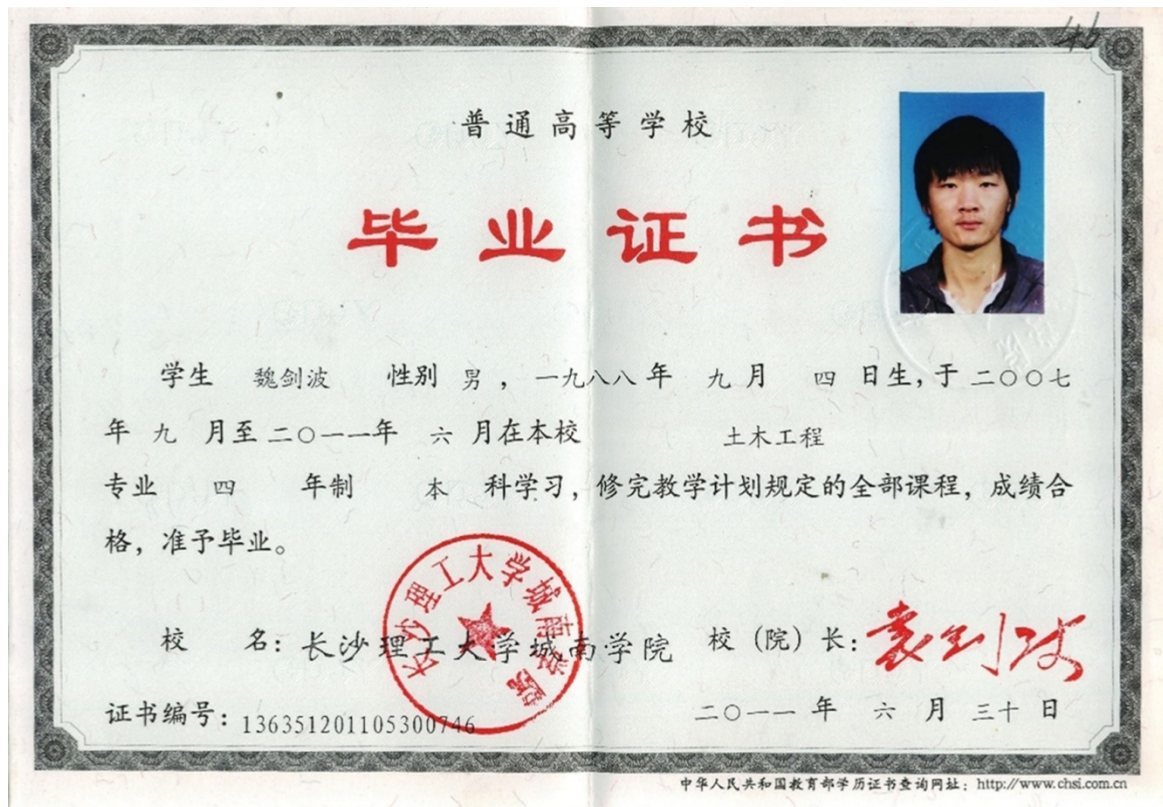 46
普通高等学校
毕业证书
学生 魏剑波 性别 男，一九八八年 九月 四 日生，于二〇〇七
年 九 月至二〇一一年 六 月在本校 土木工程
专业 四 年制 本 科学习，修完教学计划规定的全部课程，成绩合
格，准予毕业。
长沙理工大学城南学院
校 名：长沙理工大学城南学院 校（院）长：
证书编号：136351201105300746 二〇一一 年 六 月 三十 日
中华人民共和国教育部学历证书查询网址：http://www.chsi.com.cn